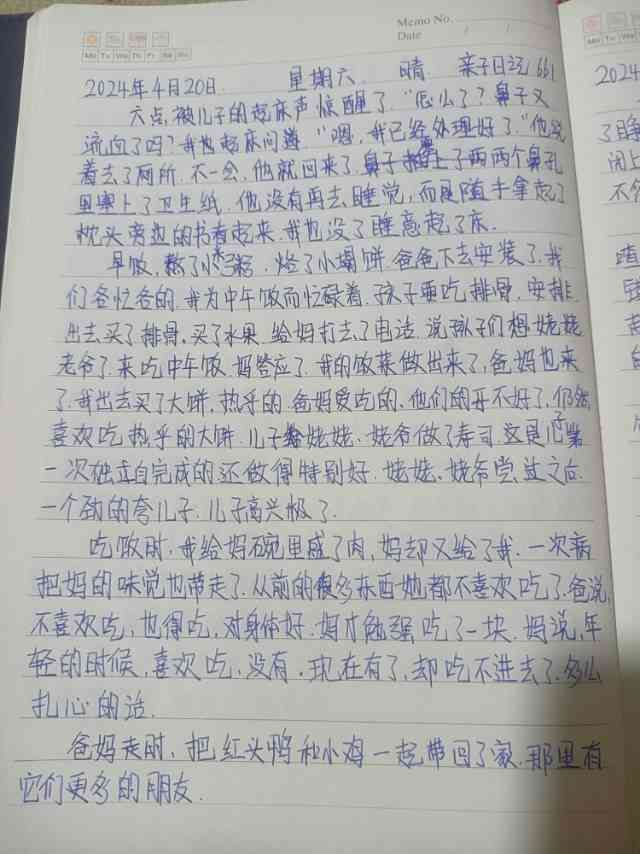 Memo No.
Date / /
Mo Tu We Th Fr Sa Su
2024年4月20日. 星期六. 晴. 亲子日记661
六点,被儿子的起床声惊醒了."怎么了?鼻子又
流血了吗?我也起床问道 "嗯,我已经处理好了."他说
着去了厕所.不一会,他就回来了.鼻子 上了两两个鼻孔
里塞上了卫生纸.他没有再去睡觉,而是随手拿起了
枕头旁边的书看起来.我也没了睡意起了床.
早饭,熬了小米粥,烙了小塌饼.爸爸下去安装了.我
们各忙各的.我为中午饭而忙碌着.孩子要吃排骨,安排
出去买了排骨,买了水果.给妈打去了电话.说孩子们想姥姥
老爷了.来吃中午饭.妈答应了.我的饭菜做出来了,爸妈也来
了.我出去买了大饼,热乎的.爸妈爱吃的.他们的牙不好了,仍然
喜欢吃热乎的大饼.儿子给姥姥、姥爷做了寿司.这是儿子第
一次独立自完成的.还做得特别好.姥姥、姥爷尝过之后
一个劲的夸儿子.儿子高兴极了.
吃饭时,我给妈碗里盛了肉,妈却又给了我.一次病
把妈的味觉也带走了.从前的很多东西她都不喜欢吃了.爸说,
不喜欢吃,也得吃,对身体好.妈才勉强吃了一块.妈说,年
轻的时候,喜欢吃,没有.现在有了,却吃不进去了.多么
扎心的话.
爸妈走时,把红头鸭和小鸡一起带回了家.那里有
它们更多的朋友.
Mo Tu We Th Fr
2024
了自
闭上
不